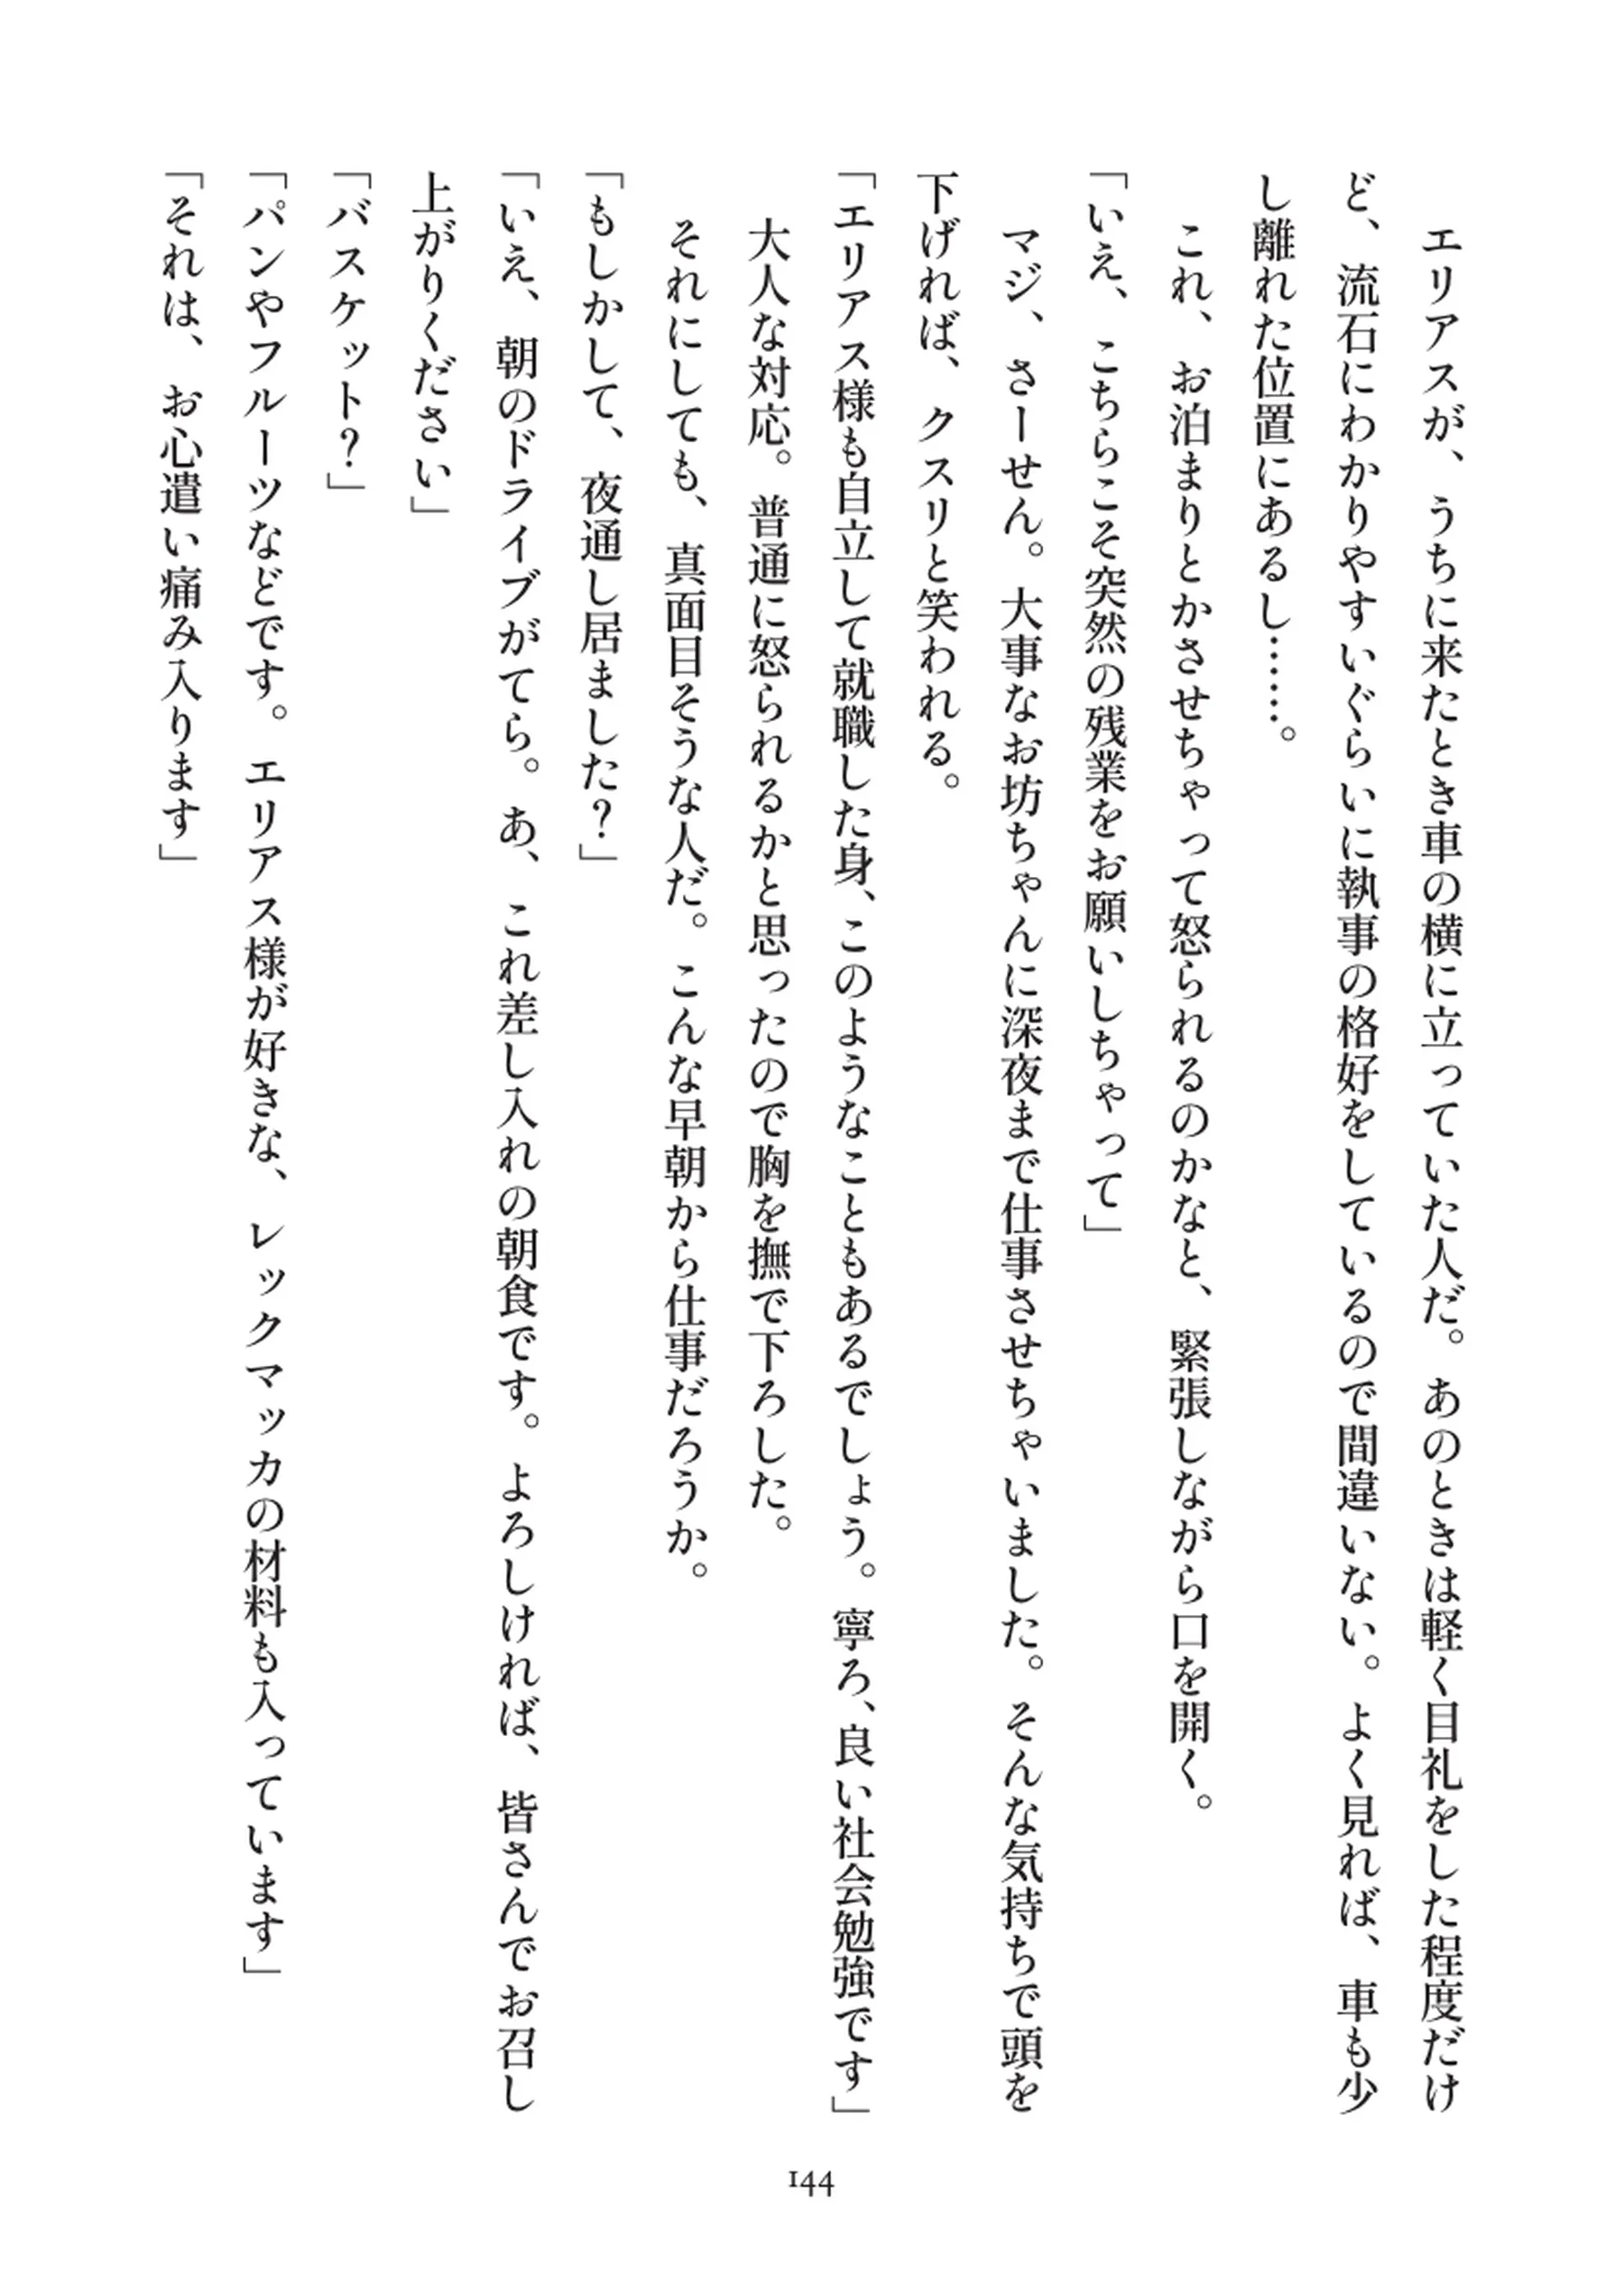 エリアスが、うちに来たとき車の横に立っていた人だ。あのときは軽く目礼をした程度だけ
ど、流石にわかりやすいぐらいに執事の格好をしているので間違いない。よく見れば、車も少
し離れた位置にあるし……。
これ、お泊まりとかさせちゃって怒られるのかなと、緊張しながら口を開く。
「いえ、こちらこそ突然の残業をお願いしちゃって」
マジ、さーせん。大事なお坊ちゃんに深夜まで仕事させちゃいました。そんな気持ちで頭を
下げれば、クスリと笑われる。
「エリアス様も自立して就職した身、このようなこともあるでしょう。寧ろ、良い社会勉強です」
大人な対応。普通に怒られるかと思ったので胸を撫で下ろした。
それにしても、真面目そうな人だ。こんな早朝から仕事だろうか。
「もしかして、夜通し居ました？」
「いえ、朝のドライブがてら。あ、これ差し入れの朝食です。よろしければ、皆さんでお召し
上がりください」
「バスケット？」
「パンやフルーツなどです。エリアス様が好きな、レックマッカの材料も入っています」
「それは、お心遣い痛み入ります」
144